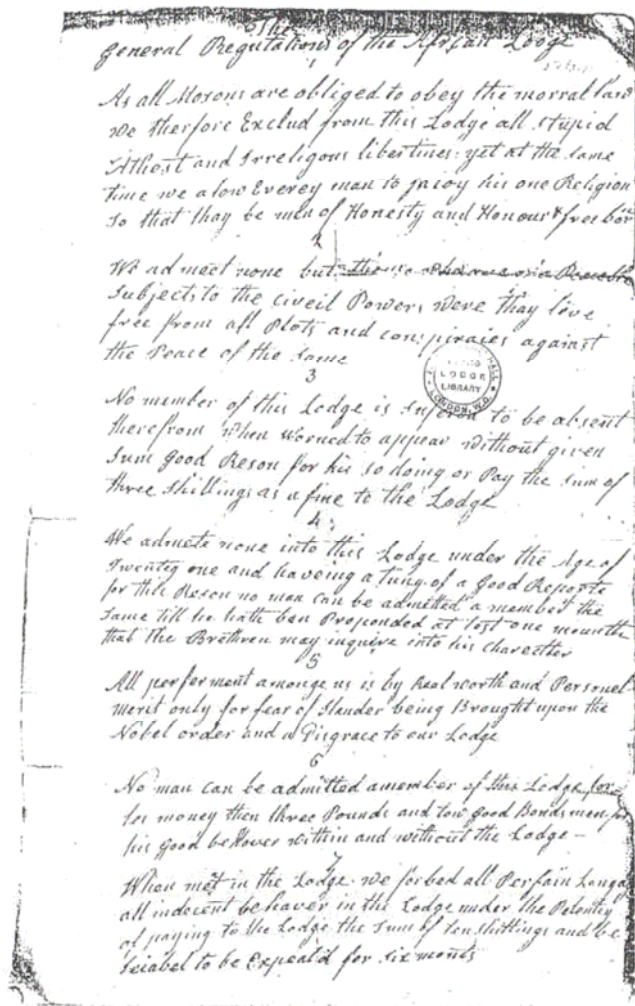 The
General Regulations of the African Lodge
As all Masons are obliged to obey the morral Law
we therfore Exclud from this Lodge all stupid
Atheist and Irreligous libertines: yet at the same
time we alow Everey man to injoy his one Religion
so that thay be men of Honesty and Honour & free born
2
We admeet none but
Subjects to the civeil Powers were thay live
free from all Plots and conspiraies against
the Peace of the same
3
No member of this Lodge is to be absent
therefrom when worned to appear without given
sum good Reson for his so doing or Pay the sum of
three shillings as a fine to the Lodge
4
We admete none into this Lodge under the Age of
Twenty one and haveing a tung of a good Reporte
for this Reson no man can be admitted a member the
same till he hath ben Proponded at lest one mounth
that the Brethren may inquire into his charecther
5
All perferment amonge us is by Real worth and Personel
merit only for fear of Slander being Brought upon the
Nobel order and a Disgrace to our Lodge
6
No man can be admitted a member of this Lodge for
les money then three Pounds and tow good Bondsmen for
his good behaver within and without the Lodge -
7
When met in the Lodge we forbed all Perfain
all indecent behaver in the Lodge under the Penelty
of paying to the Lodge the sum of ten shillings and be
leiabel to be Expeal'd for six monts
LODGE
LIBRARY
LONDON, W.C.